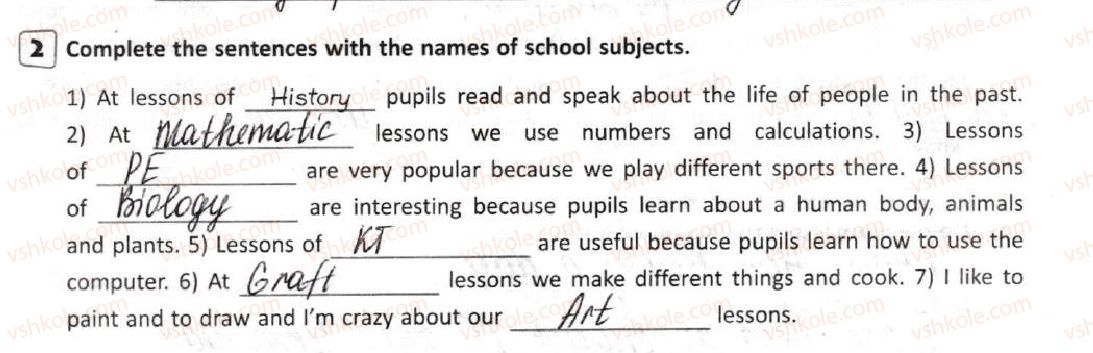 2 Complete the sentences with the names of school subjects.
1) At lessons of History pupils read and speak about the life of people in the past.
2) At Mathematic lessons we use numbers and calculations. 3) Lessons
of PE are very popular because we play different sports there. 4) Lessons
of Biology are interesting because pupils learn about a human body, animals
and plants. 5) Lessons of KT are useful because pupils learn how to use the
computer. 6) At Graft lessons we make different things and cook. 7) I like to
paint and to draw and I'm crazy about our Art lessons.